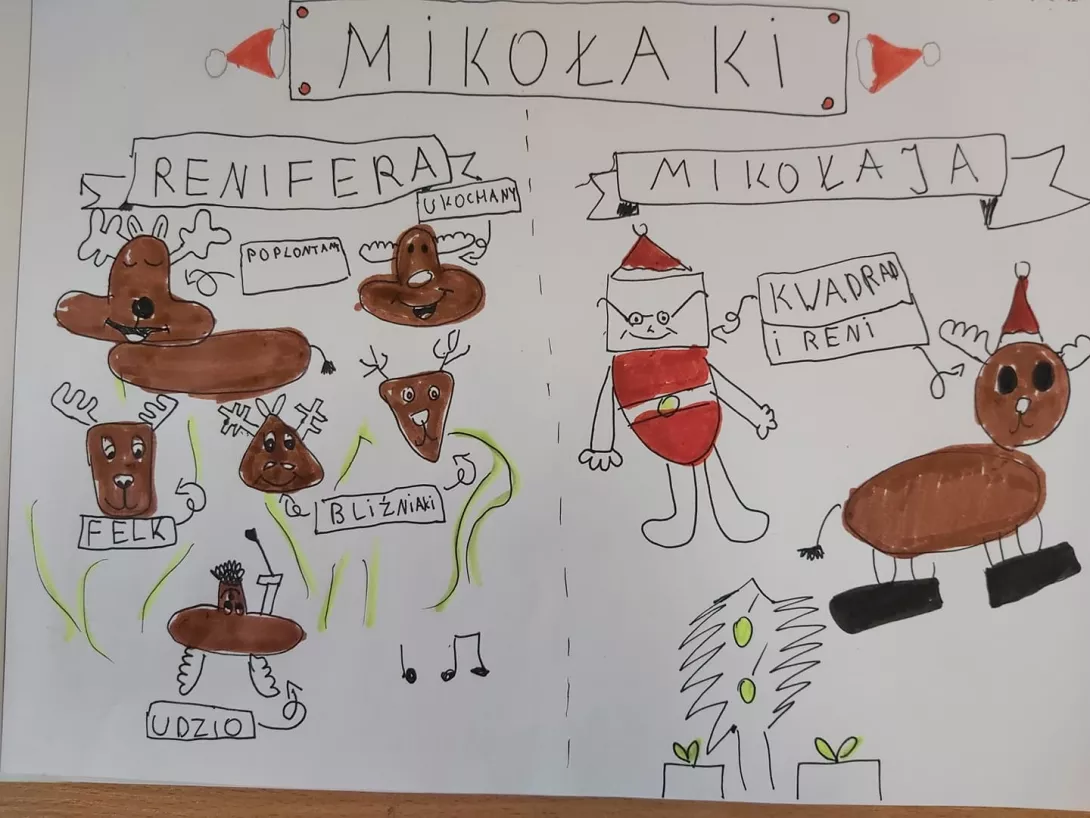 MIKOŁAKI
RENIFERA
UKOCHANY
POPLONTANY
FELK
BLIŹNIAKI
UDZIO
MIKOŁAJA
KWADRAD
i RENI